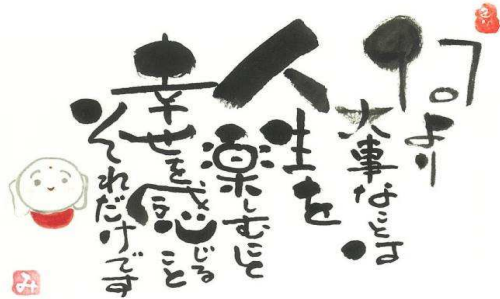 何より
大事なことは
人生を
楽しむこと
幸せを
感じること
それだけです
み